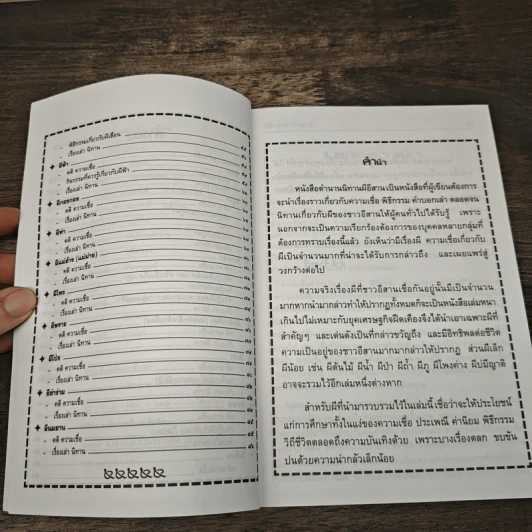 - พิธีกรรมเกี่ยวกับผีเฮือน
- เรื่องเล่า นิทาน
ผีฟ้า
- คติ ความเชื่อ
- กิจกรรมที่ควรรู้เกี่ยวกับผีฟ้า
- เรื่องเล่า นิทาน
- คติ ความเชื่อ
- เรื่องเล่า นิทาน
- คติ ความเชื่อ
- เรื่องเล่า นิทาน
ผีแม่ย้าย (แม่ม่าย)
- เรื่องเล่า นิทาน
- คติ ความเชื่อ
- เรื่องเล่า นิทาน
- คติ ความเชื่อ
- เรื่องเล่า นิทาน
ผีโป่ง
- คติ ความเชื่อ
- เรื่องเล่า นิทาน
- คติ ความเชื่อ
- เรื่องเล่า นิทาน
- คติ ความเชื่อ
- เรื่องเล่า นิทาน
คำนำ
หนังสือตำนานนิทานผีอีสานเป็นหนังสือที่ผู้เขียนต้องการ
จะนำเรื่องราวเกี่ยวกับความเชื่อ พิธีกรรม คำบอกเล่า ตลอดจน
นิทานเกี่ยวกับผีของชาวอีสานให้ผู้คนทั่วไปได้รับรู้ เพราะ
นอกจากจะเป็นความเรียกร้องต้องการของบุคคลหลายกลุ่มที่
ต้องการทราบเรื่องนี้แล้ว ยังเห็นว่ามีเรื่องผี ความเชื่อเกี่ยวกับ
ผีเป็นจำนวนมากที่น่าจะได้รับการกล่าวถึง และเผยแพร่สู่
วงกว้างต่อไป
ความจริงเรื่องผีที่ชาวอีสานเชื่อกันอยู่นั้นมีเป็นจำนวน
มากหากนำมากล่าวทำให้ปรากฏทั้งหมดก็จะเป็นหนังสือเล่มหนา
เกินไปไม่เหมาะกับยุคเศรษฐกิจฝืดเคืองจึงได้นำเอาเฉพาะผีที่
สำคัญๆ และเด่นดังเป็นที่กล่าวขวัญถึง และมีอิทธิพลต่อชีวิต
ความเป็นอยู่ของชาวอีสานมากมากล่าวให้ปรากฏ ส่วนผีเล็ก
ผีน้อย เช่น ผีต้นไม้ ผีน้ำ ผีป่า ผีถ้ำ ผีภู ผีโพงค่าง ผีปมีญาติ
อาจจะรวมไว้อีกเล่มหนึ่งต่างหาก
สำหรับผีที่นำมารวบรวมไว้ในเล่มนี้ เชื่อว่าจะให้ประโยชน์
แก่การศึกษาทั้งในแง่ของความเชื่อ ประเพณี ค่านิยม พิธีกรรม
วิถีชีวิตตลอดถึงความบันเทิงด้วย เพราะบางเรื่องตลก ขบขัน
ปนด้วยความน่ากลัวเล็กน้อย